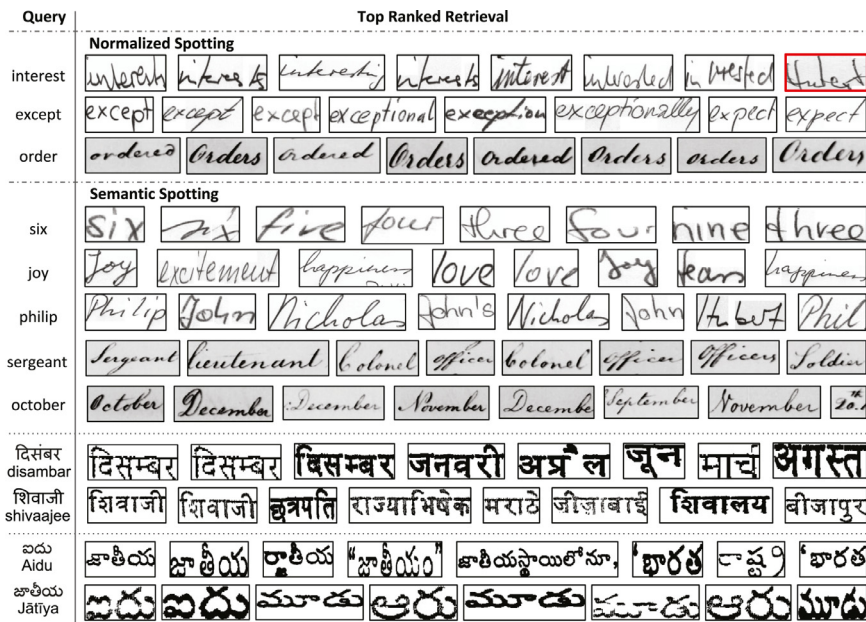 Query Top Ranked Retrieval
Normalized Spotting
interest interests interests interesting interests interest interested interested
except except except except exceptional exception exceptionally expect expect
order ordered Orders ordered Orders ordered Orders orders Orders
Semantic Spotting
six six six five four three four nine three
joy Joy excitement happiness love love Joy tears happiness
philip Philip John Nicholas John's Nicholas John Hubert Phil
sergeant Sergeant lieutenant Colonel officer Colonel officer Officers Soldier
october October December December November December September November 20th
दिसंबर दिसम्बर दिसम्बर दिसम्बर जनवरी अप्रैल जून मार्च अगस्त
disambar
शिवाजी शिवाजी शिवाजी छत्रपति राज्याभिषेक मराठे जीजाबाई शिवालय बीजापुर
shivaajee
ఐదు జాతీయ జాతీయ జాతీయ "జాతీయం" జాతీయస్థాయిలోనూ, 'భారత రాష్ట్ర 'భారత
Aidu
జాతీయ ఐదు ఐదు మూడు ఆరు మూడు మూడు ఆరు మూడు
Jātīya